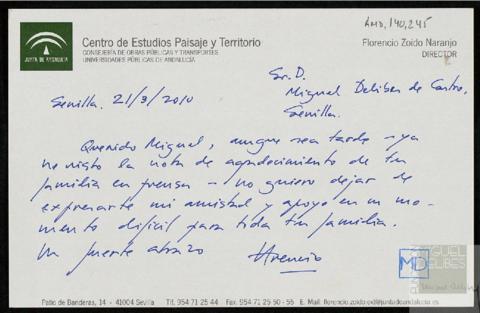 AMD, 140, 245
JUNTA DE ANDALUCIA
Centro de Estudios Paisaje y Territorio
CONSEJERÍA DE OBRAS PÚBLICAS Y TRANSPORTES
UNIVERSIDADES PÚBLICAS DE ANDALUCÍA
Florencio Zoido Naranjo
DIRECTOR
Sr. D.
Miguel Delibes de Castro,
Sevilla.
Sevilla. 21/3/2010
Querido Miguel, aunque sea tarde - ya
he visto la nota de agradecimiento de tu
familia en prensa - no quiero dejar de
expresarte mi amistad y apoyo en un mo-
mento difícil para toda tu familia.
Un fuerte abrazo
Florencio
MD
MIGUEL
DELIBES
Patio de Banderas, 14 - 41004 Sevilla Tlf. 954 71 25 44 Fax. 954 71 25 50 - 56 E. Mail: florencio.zoido.ext@juntadeandalucia.es